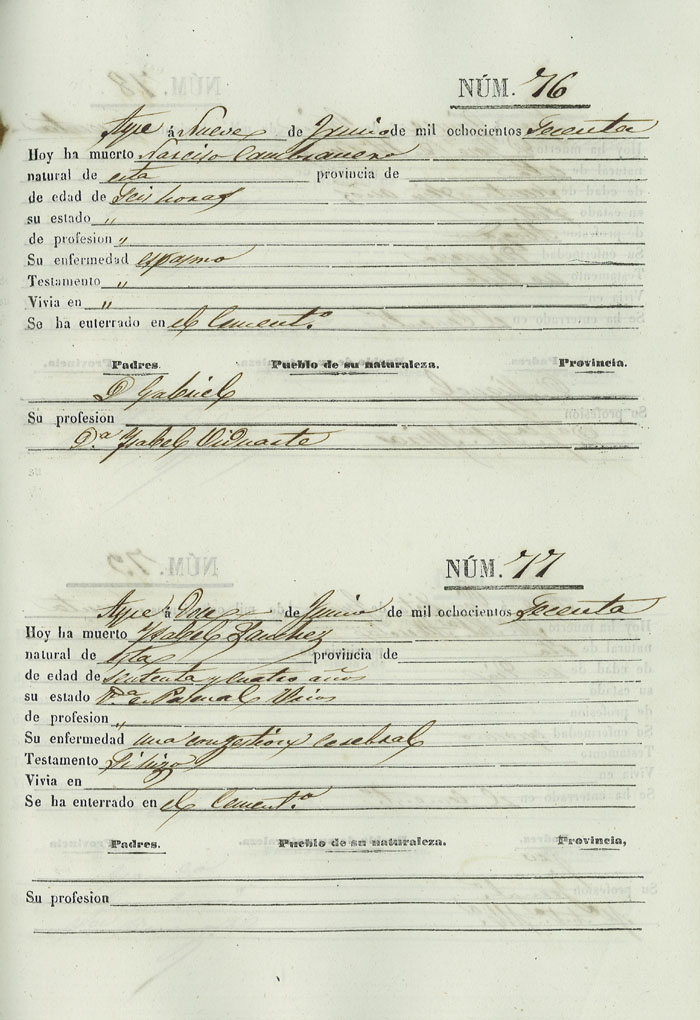 NÚM. 76
Ayre á Nueve de Junio de mil ochocientos Secenta
Hoy ha muerto Narciso
natural de esta provincia de
de edad de Seis horas
su estado „
de profesion „
Su enfermedad espasmo
Testamento „
Vivia en „
Se ha enterrado en el Cement.º
Padres. Pueblo de su naturaleza. Provincia.
D Gabriel
Su profesion
D.ª Ysabel
NÚM. 77
Ayre á Doce de Junio de mil ochocientos Secenta
Hoy ha muerto Ysabel Sanchez
natural de Esta provincia de
de edad de sententa y cuatro años
su estado V.ª de Pascual
de profesion „
Su enfermedad una congestion cerebral
Testamento Si hizo
Vivia en
Se ha enterrado en el Cement.º
Padres. Pueblo de su naturaleza. Provincia,
Su profesion